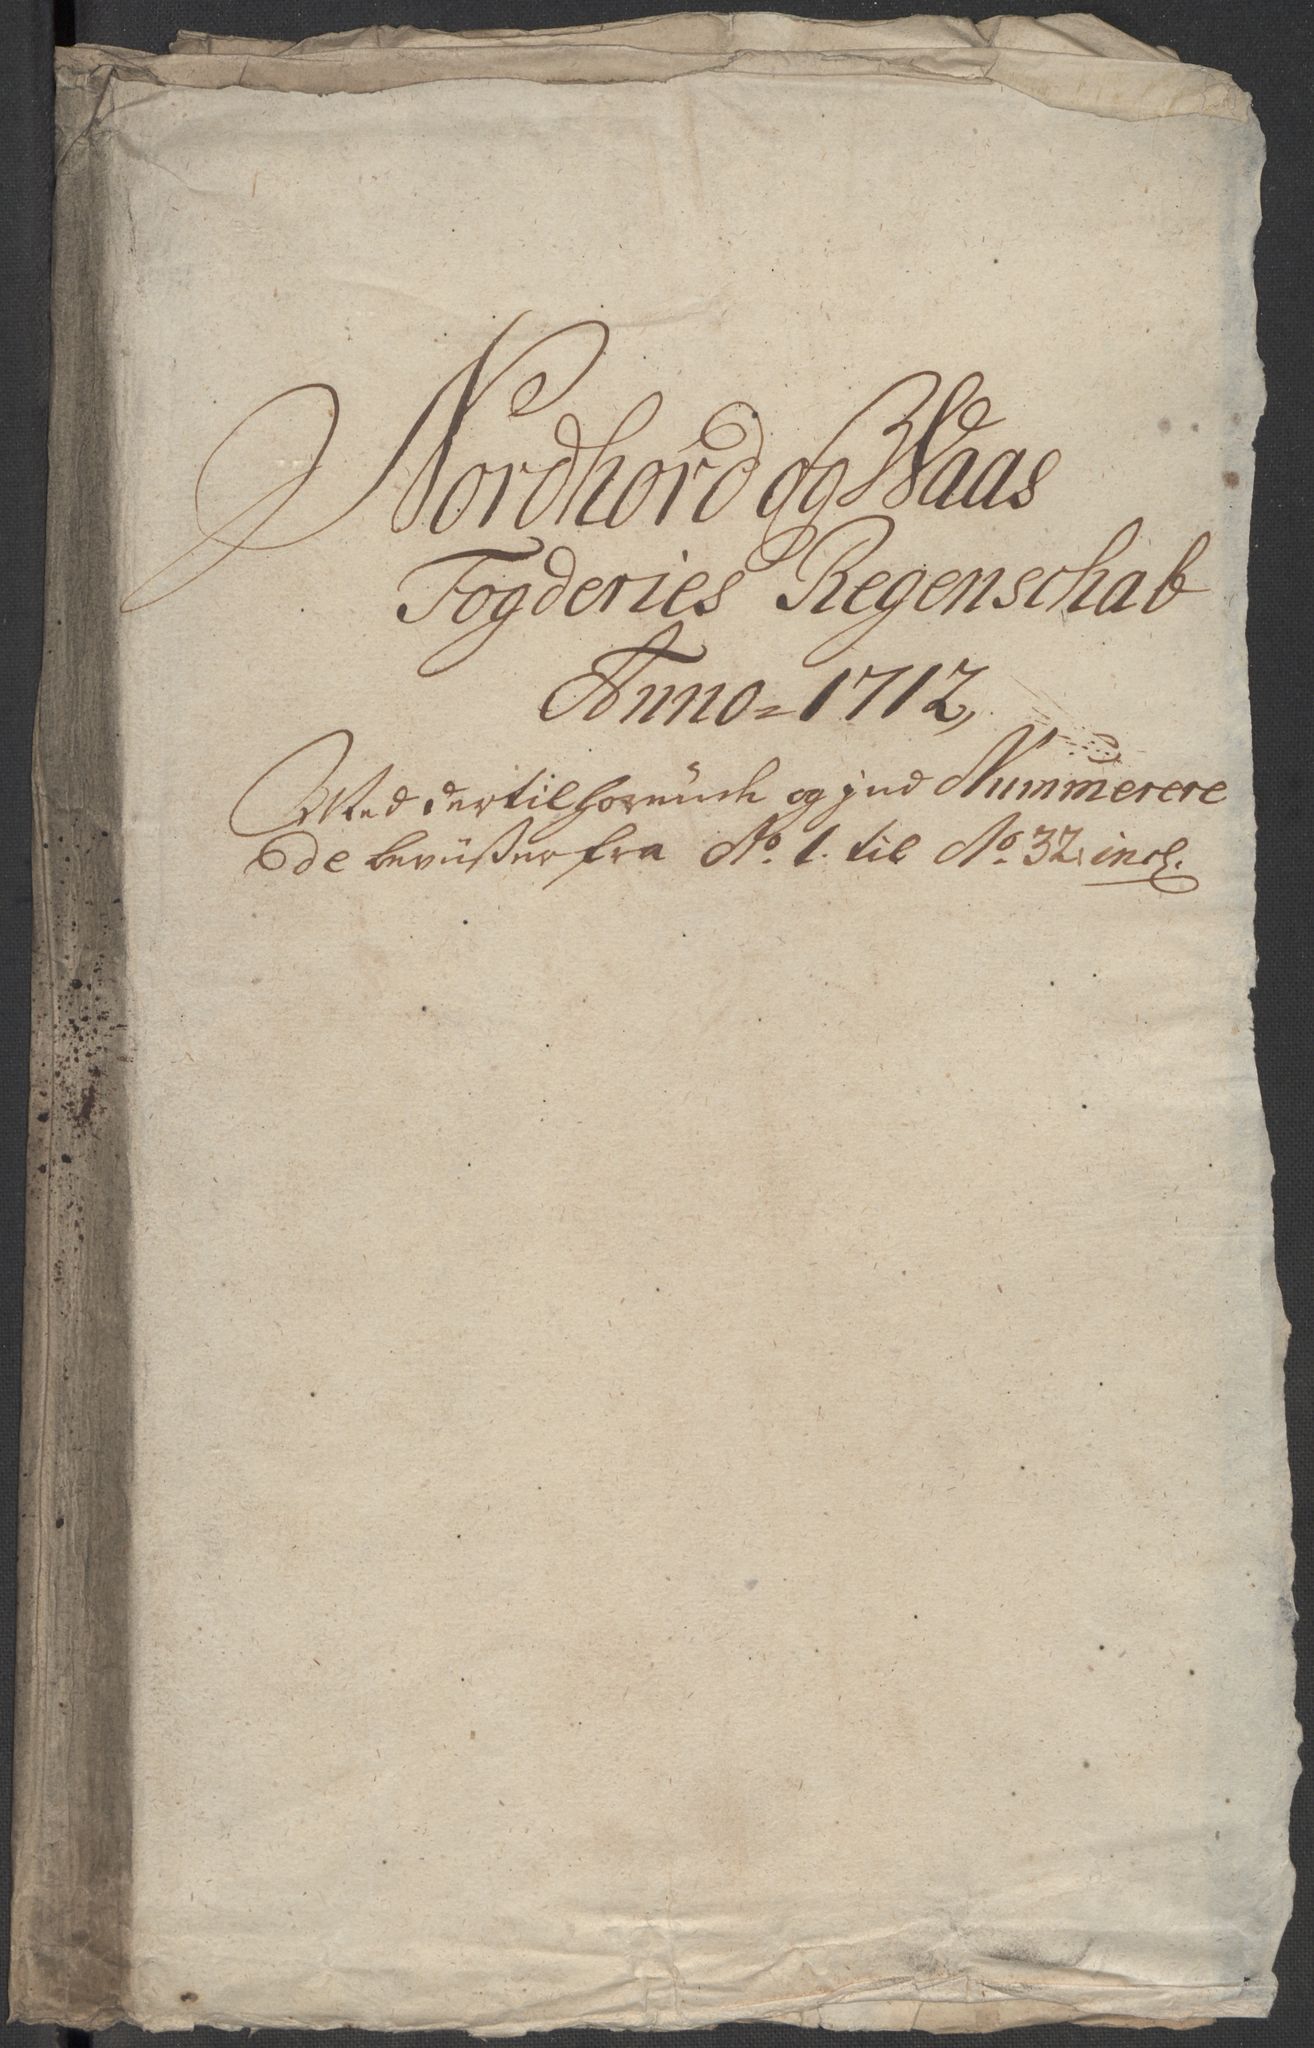 Nordhord og Waas
Fogderies Regenschab
Anno = 1712,
Med dertilhørende og jnd Nummerere
de bevüßer fra No. 1. til No. 32. incl.